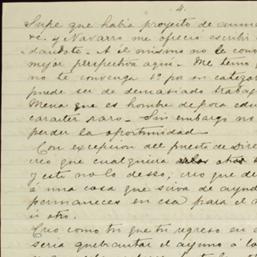 4.
Supe que había proyecto de aumen
ré. y Navarro me ofreció escribir
dándote. A él mismo no le conv
mejor perspectiva aquí. Me temo q
no te convenga 1º por en categor
puede ser de demasiado trabaj
Mena que es hombre de poca edu
carácter raro. Sin embargo no
perder la oportunidad.
Con excepción del puesto de Dire
creo que cualquiera otro
y este no lo deseo, creo que de
á una cosa que sirva de ayud
permaneces en esa para el a
is otro.
Creo como tú que tu regreso en
sería quebrantar el ayuno á la